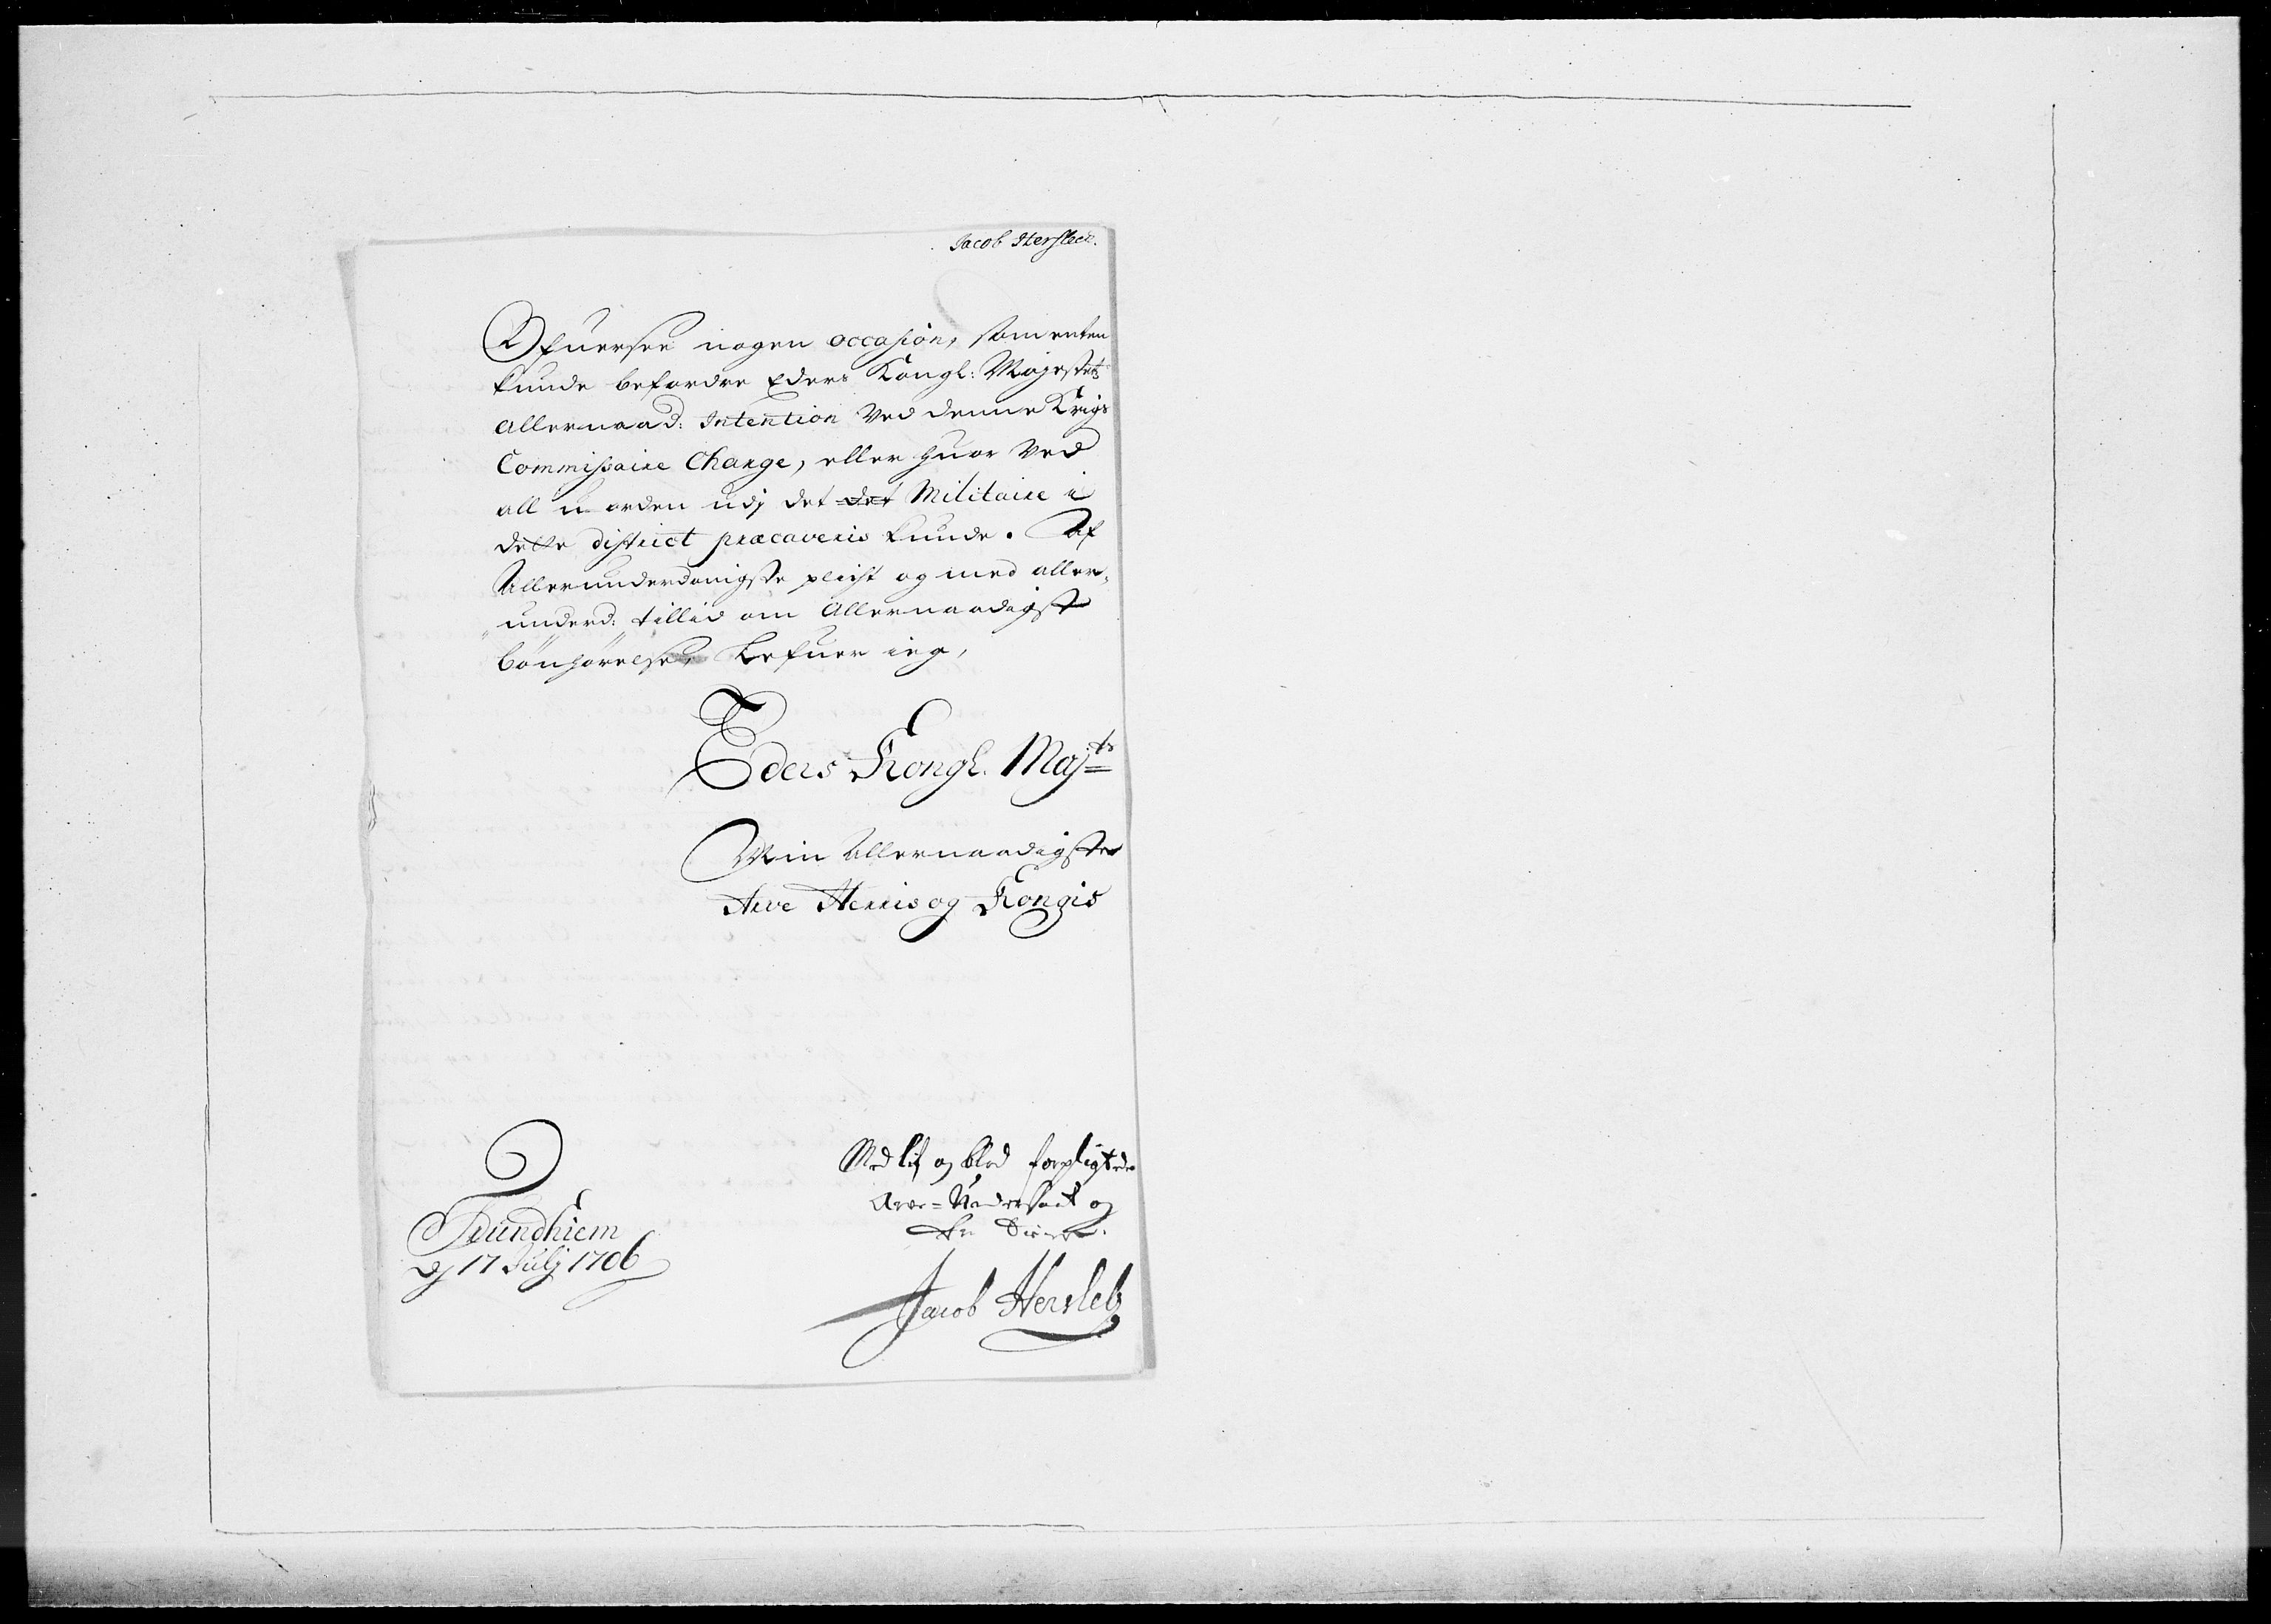 Jacob Hersleb.
Ofuersee nogen occasion, som enten
kunde befordre Eders Kongl: Majestets
allernaad: Intention Ved denne Krigs
Commissaire Charge, eller huor Ved
all u-orden udj det det Militaire i
dette district præcaveris kunde. Af
Allerunderdanigste plicht og med aller„
„underd: tillid om Allernaadigst
bönhörelse, Lefuer ieg,
Eders Kongl. Maj:ts
Min Allernaadigste
Arve Herris og Kongis
Med lif og blod forpligtede
Arve-Undersaat og
Tiener.
Trundhiem
dj 17 Julj 1706
Jacob Hersleb